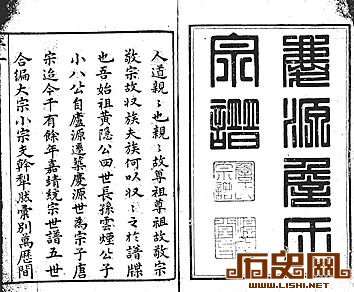 慶源詹氏
宗譜
人道親〻也親〻故尊祖尊祖故敬宗
敬宗故収族夫族何以収〻之於譜牒
也吾始祖黄隱公四世長孫雲煙公子
小八公自廬源遷慶世為宗子唐
宗迄今千有餘年嘉靖統宗世譜五世
合編大宗小宗支幹犁然彙別萬歷間
历史网
WWW.LISHI.NET